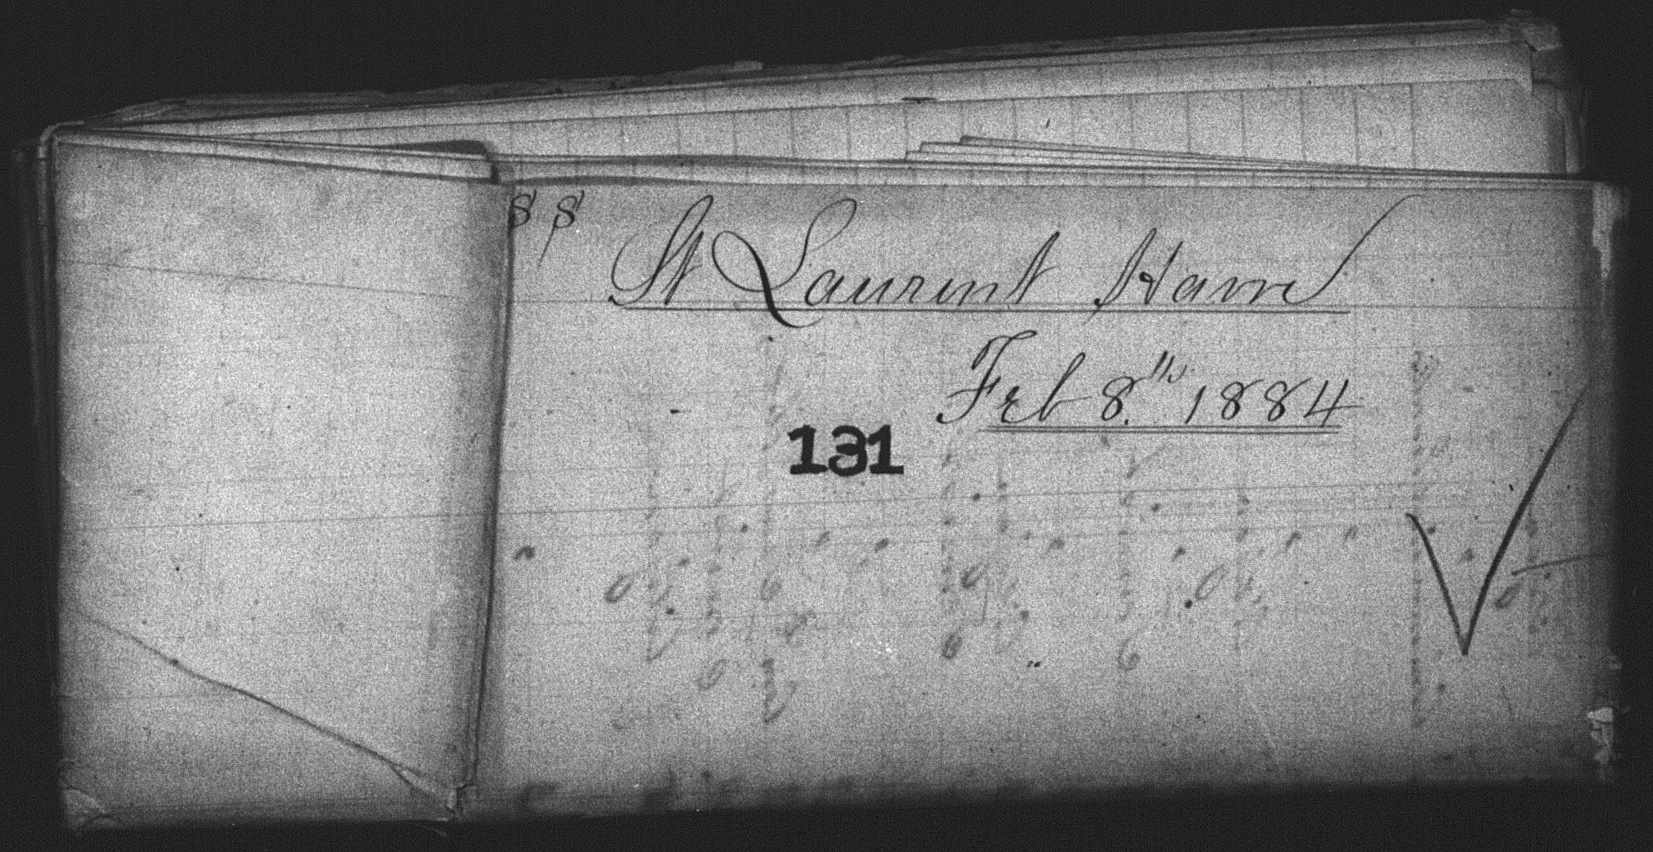 SS St Laurent Havre
Feb 8th. 1884
131